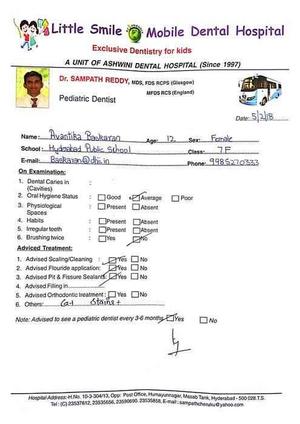 Little Smile Mobile Dental Hospital
Exclusive Dentistry for kids
A UNIT OF ASHWINI DENTAL HOSPITAL (Since 1997)
Dr. SAMPATH REDDY, MDS, FDS RCPS (Glasgow)
MFDS RCS (England)
Pediatric Dentist
Date: 5/2/18
Name: Avantika Baskaran Age: 12 Sex: Female
School: Hyderabad Public School Class: 7F
E-mail: Phone: 9985270333
On Examination:
1. Dental Caries in (Cavities) :
2. Oral Hygiene Status : Good Average Poor
3. Physiological Spaces : Present Absent
4. Habits : Present Absent
5. Irregular teeth : Present Absent
6. Brushing twice : Yes No
Adviced Treatment:
1. Advised Scaling/Cleaning : Yes No
2. Advised Flouride application: Yes No
3. Advised Pit & Fissure Sealants Yes No
4. Advised Filling in
5. Advised Orthodontic treatment : Yes No
6. Others: Stains+
Note: Advised to see a pediatric dentist every 3-6 months Yes No
Hospital Address: H.No. 10-3-304/13, Opp: Post Office, Humayunnagar, Masab Tank, Hyderabad - 500 028 T.S.